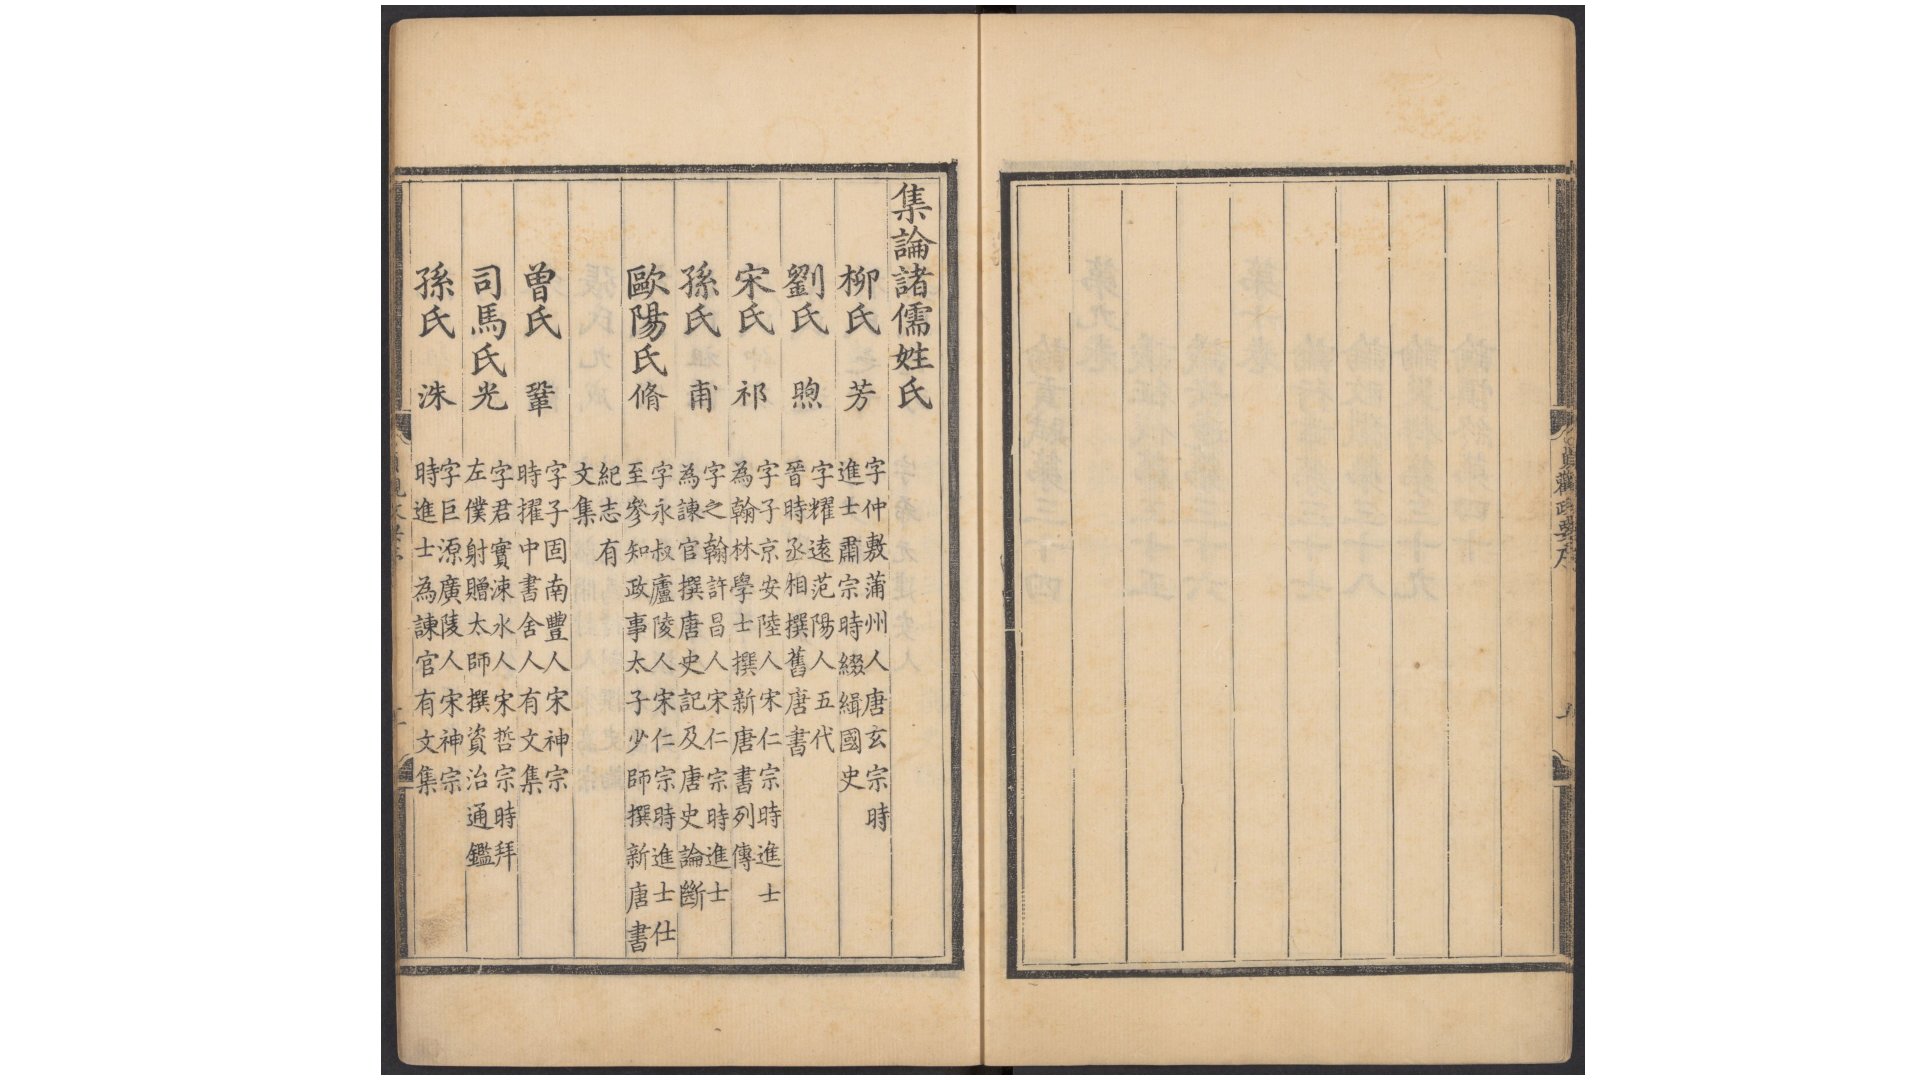 集論諸儒姓氏
柳氏芳
字仲敷蒲州人唐玄宗時
進士肅宗時綴緝國史
劉氏煦
字耀遠范陽人五代
晉時丞相撰舊唐書
宋氏祁
字子京安陸人宋仁宗時進士
為翰林學士撰新唐書列傳
孫氏甫
字之翰許昌人宋仁宗時進士
為諫官撰唐史記及唐史論斷
歐陽氏脩
字永叔廬陵人宋仁宗時進士仕
至參知政事太子少師撰新唐書
紀志有
文集
曾氏鞏
字子固南豐人宋神宗
時擢中書舍人有文集
司馬氏光
字君實涑水人宋哲宗時拜
左僕射贈太師撰資治通鑑
孫氏洙
字巨源廣陵人宋神宗
時進士為諫官有文集